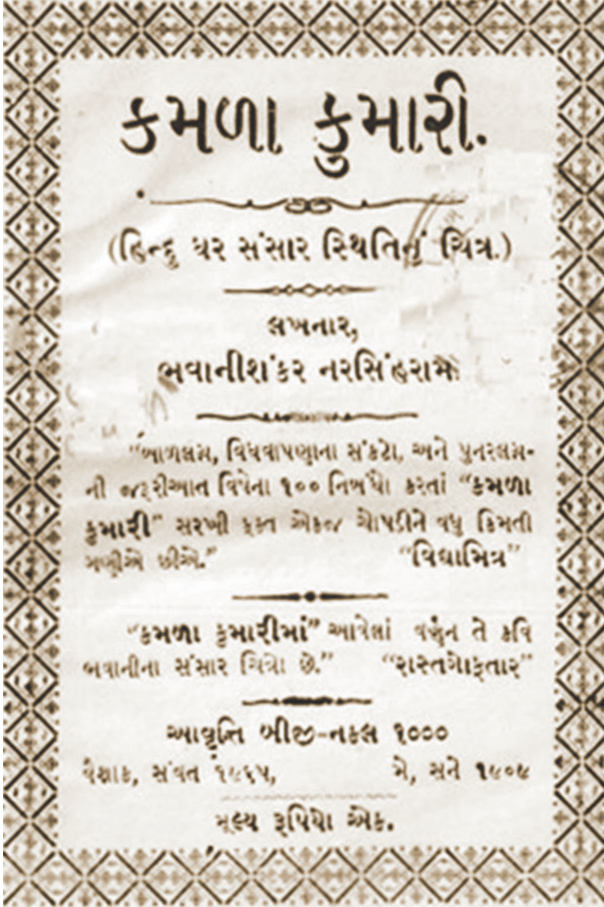 કમળા કુમારી.
(હિન્દુ ઘર સંસાર સ્થિતિનું ચિત્ર.)
લખનાર,
ભવાનીશંકર નરસિંહરામ.
"બાળલગ્ન, વિધવાપણાના સંકટો, અને પુનરલગ્ન-
ની જરૂરીઆત વિષેના ૧૦૦ નિબંધો કરતાં "કમળા
કુમારી" સરખી ફક્ત એકજ ચોપડીને વધુ કિમતી
ગણીએ છીએ." "વિદ્યામિત્ર"
"કમળા કુમારીમાં" આવેલાં વર્ણન તે કવિ
ભવાનીના સંસાર ચિત્રો છે." "રાસ્તગોફતાર"
આવૃત્તિ બીજી-નકલ ૧૦૦૦
વૈશાક, સંવત ૧૯૬૫, મે, સને ૧૯૦૯
મૂલ્ય રૂપિયો એક.